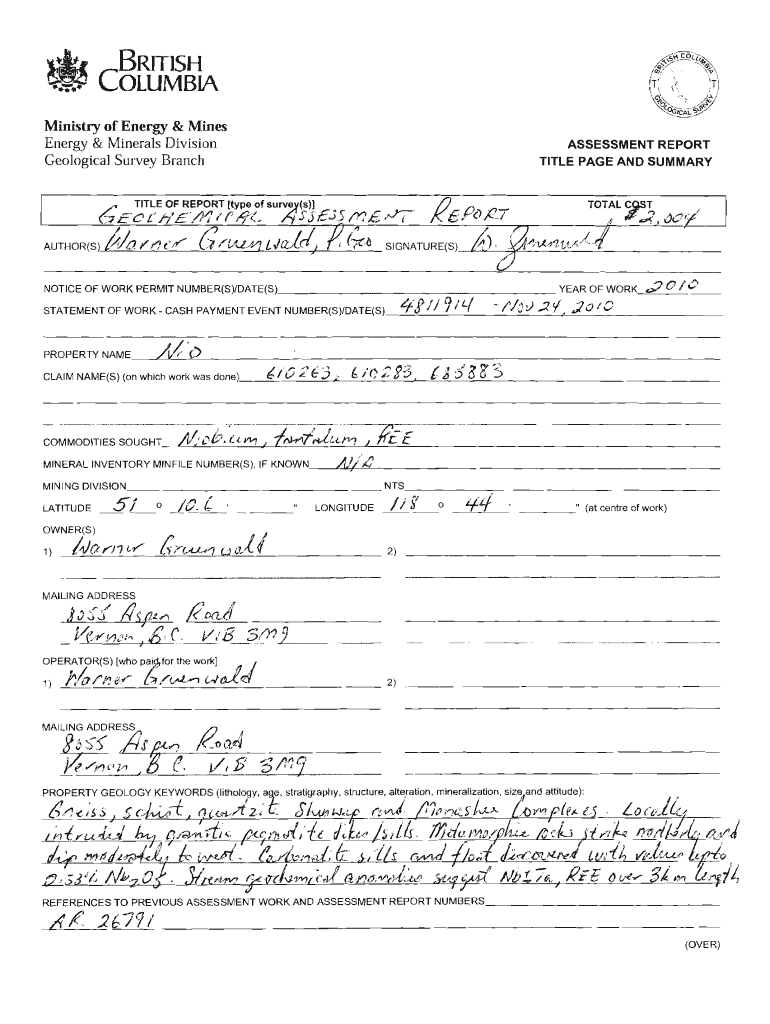 BRITISH
COLUMBIA
BRITISH COLUMBIA
GEOLOGICAL SURVEY
Ministry of Energy & Mines
Energy & Minerals Division
Geological Survey Branch
ASSESSMENT REPORT
TITLE PAGE AND SUMMARY
TITLE OF REPORT [type of survey(s)] TOTAL COST
GEOCHEMICAL ASSESSMENT REPORT $2,004
AUTHOR(S) Warner Gruenwald, P.Geo SIGNATURE(S) W. Gruenwald
NOTICE OF WORK PERMIT NUMBER(S)/DATE(S) YEAR OF WORK 2010
STATEMENT OF WORK - CASH PAYMENT EVENT NUMBER(S)/DATE(S) 4811914 - Nov 24, 2010
PROPERTY NAME Nio
CLAIM NAME(S) (on which work was done) 610263, 610283, 685883
COMMODITIES SOUGHT Niobium, tantalum, REE
MINERAL INVENTORY MINFILE NUMBER(S), IF KNOWN N/A
MINING DIVISION NTS
LATITUDE 51 ° 10.6 ' " LONGITUDE 118 ° 44 ' " (at centre of work)
OWNER(S)
1) Warner Gruenwald 2)
MAILING ADDRESS
8055 Aspen Road
Vernon, B.C. V1B 3M9
OPERATOR(S) [who paid for the work]
1) Warner Gruenwald 2)
MAILING ADDRESS
8055 Aspen Road
Vernon, B C. V1B 3M9
PROPERTY GEOLOGY KEYWORDS (lithology, age, stratigraphy, structure, alteration, mineralization, size and attitude):
Gneiss, schist, quartzite Shuswap and Monashee Complexes. Locally
intruded by granitic pegmatite dikes/sills. Metamorphic rocks strike northerly and
dip moderately to west. Carbonatite sills and float discovered with values up to
0.53% Nb2O5. Stream geochemical anomalies suggest Nb, Ta, REE over 3km length
REFERENCES TO PREVIOUS ASSESSMENT WORK AND ASSESSMENT REPORT NUMBERS
AR. 26791
(OVER)